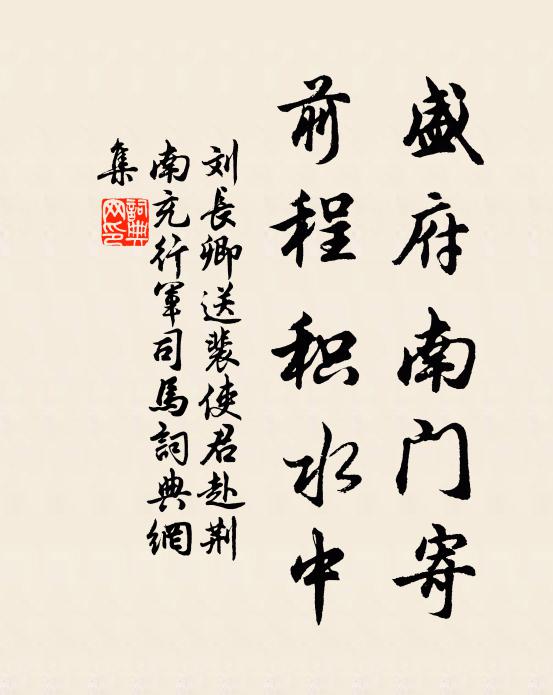 盛府南门寄
前程积水中
刘長卿送裴使君赴荆
南充行軍司馬詞典網
集
詞典网印